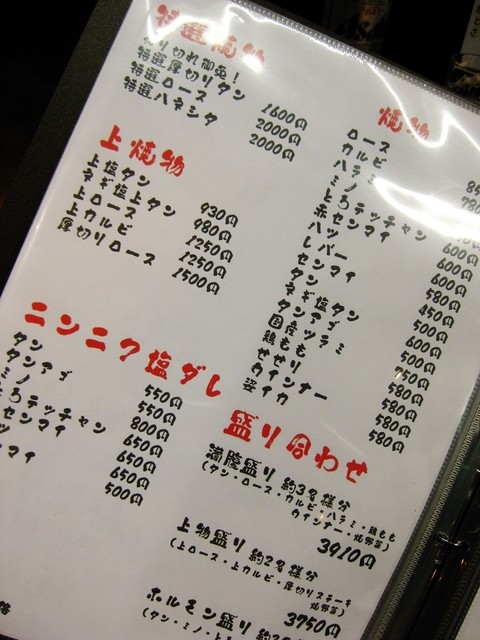 特選焼物
売り切れ御免!
特選厚切りタン 1600円
特選ロース 2000円
特選ハネシタ 2000円
上焼物
上塩タン 930円
ネギ塩上タン 980円
上ロース 1250円
上カルビ 1250円
厚切りロース 1500円
焼物
ロース
カルビ
ハラミ
ミノ
とろテッチャン
赤センマイ
ハツ
レバー
センマイ
タン
ネギ塩タン
タンアゴ
国産ツラミ
鶏もも
せせり
ウインナー
姿イカ
600円
600円
600円
580円
450円
500円
600円
500円
750円
580円
580円
580円
580円
ニンニク塩ダレ
タン 550円
タンアゴ 550円
ミノ 800円
とろテッチャン 650円
センマイ 650円
650円
500円
盛り合わせ
満腹盛り 約3名様分
(タン・ロース・カルビ・ハラミ・鶏もも
ウインナー・焼野菜)
3910円
上物盛り 約2名様分
(上ロース・上カルビ・厚切りステーキ
焼野菜)
3750円
ホルモン盛り